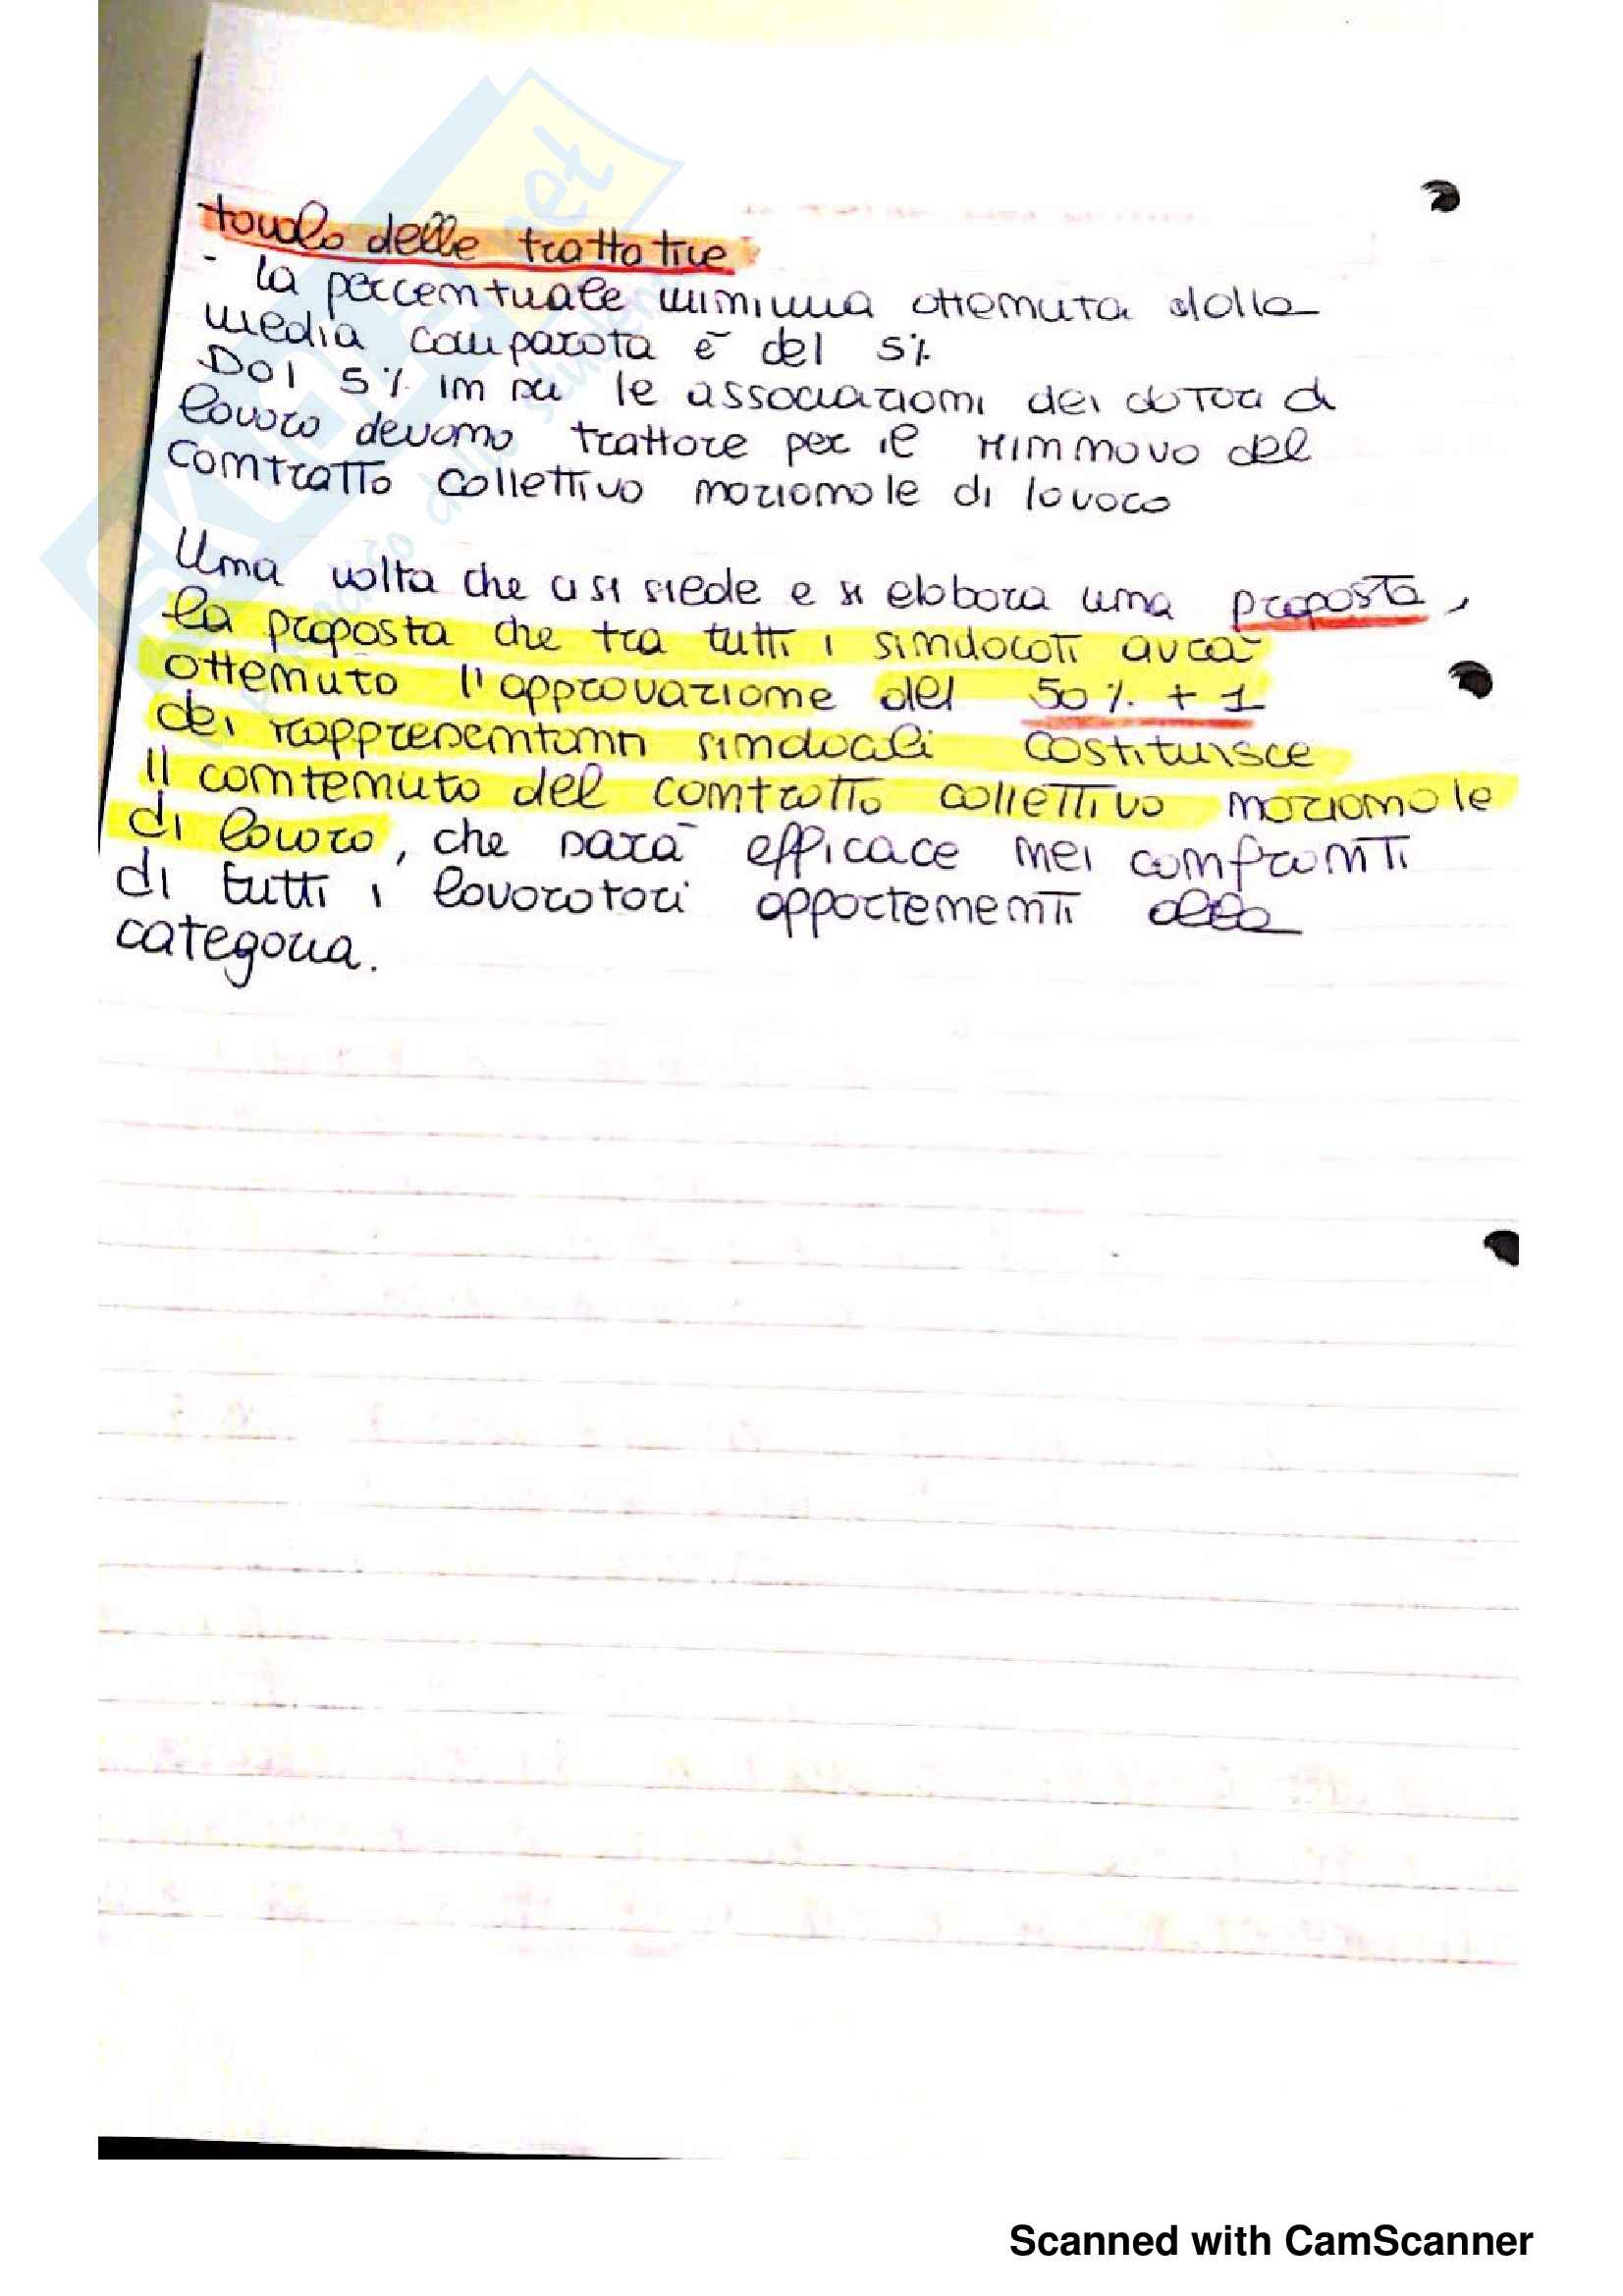 tavolo delle trattative
- la percentuale minima ottenuta dalla
media comparata è del 5%
Dal 5% in su le associazioni dei datori di
lavoro devono trattare per il rinnovo del
contratto collettivo nazionale di lavoro
Una volta che ci si siede e si elabora una proposta,
la proposta che tra tutti i sindacati avrà
ottenuto l'approvazione del 50% + 1
dei rappresentanti sindacali costituisce
il contenuto del contratto collettivo nazionale
di lavoro, che sarà efficace nei confronti
di tutti i lavoratori appartenenti alla
categoria.
Scanned with CamScanner